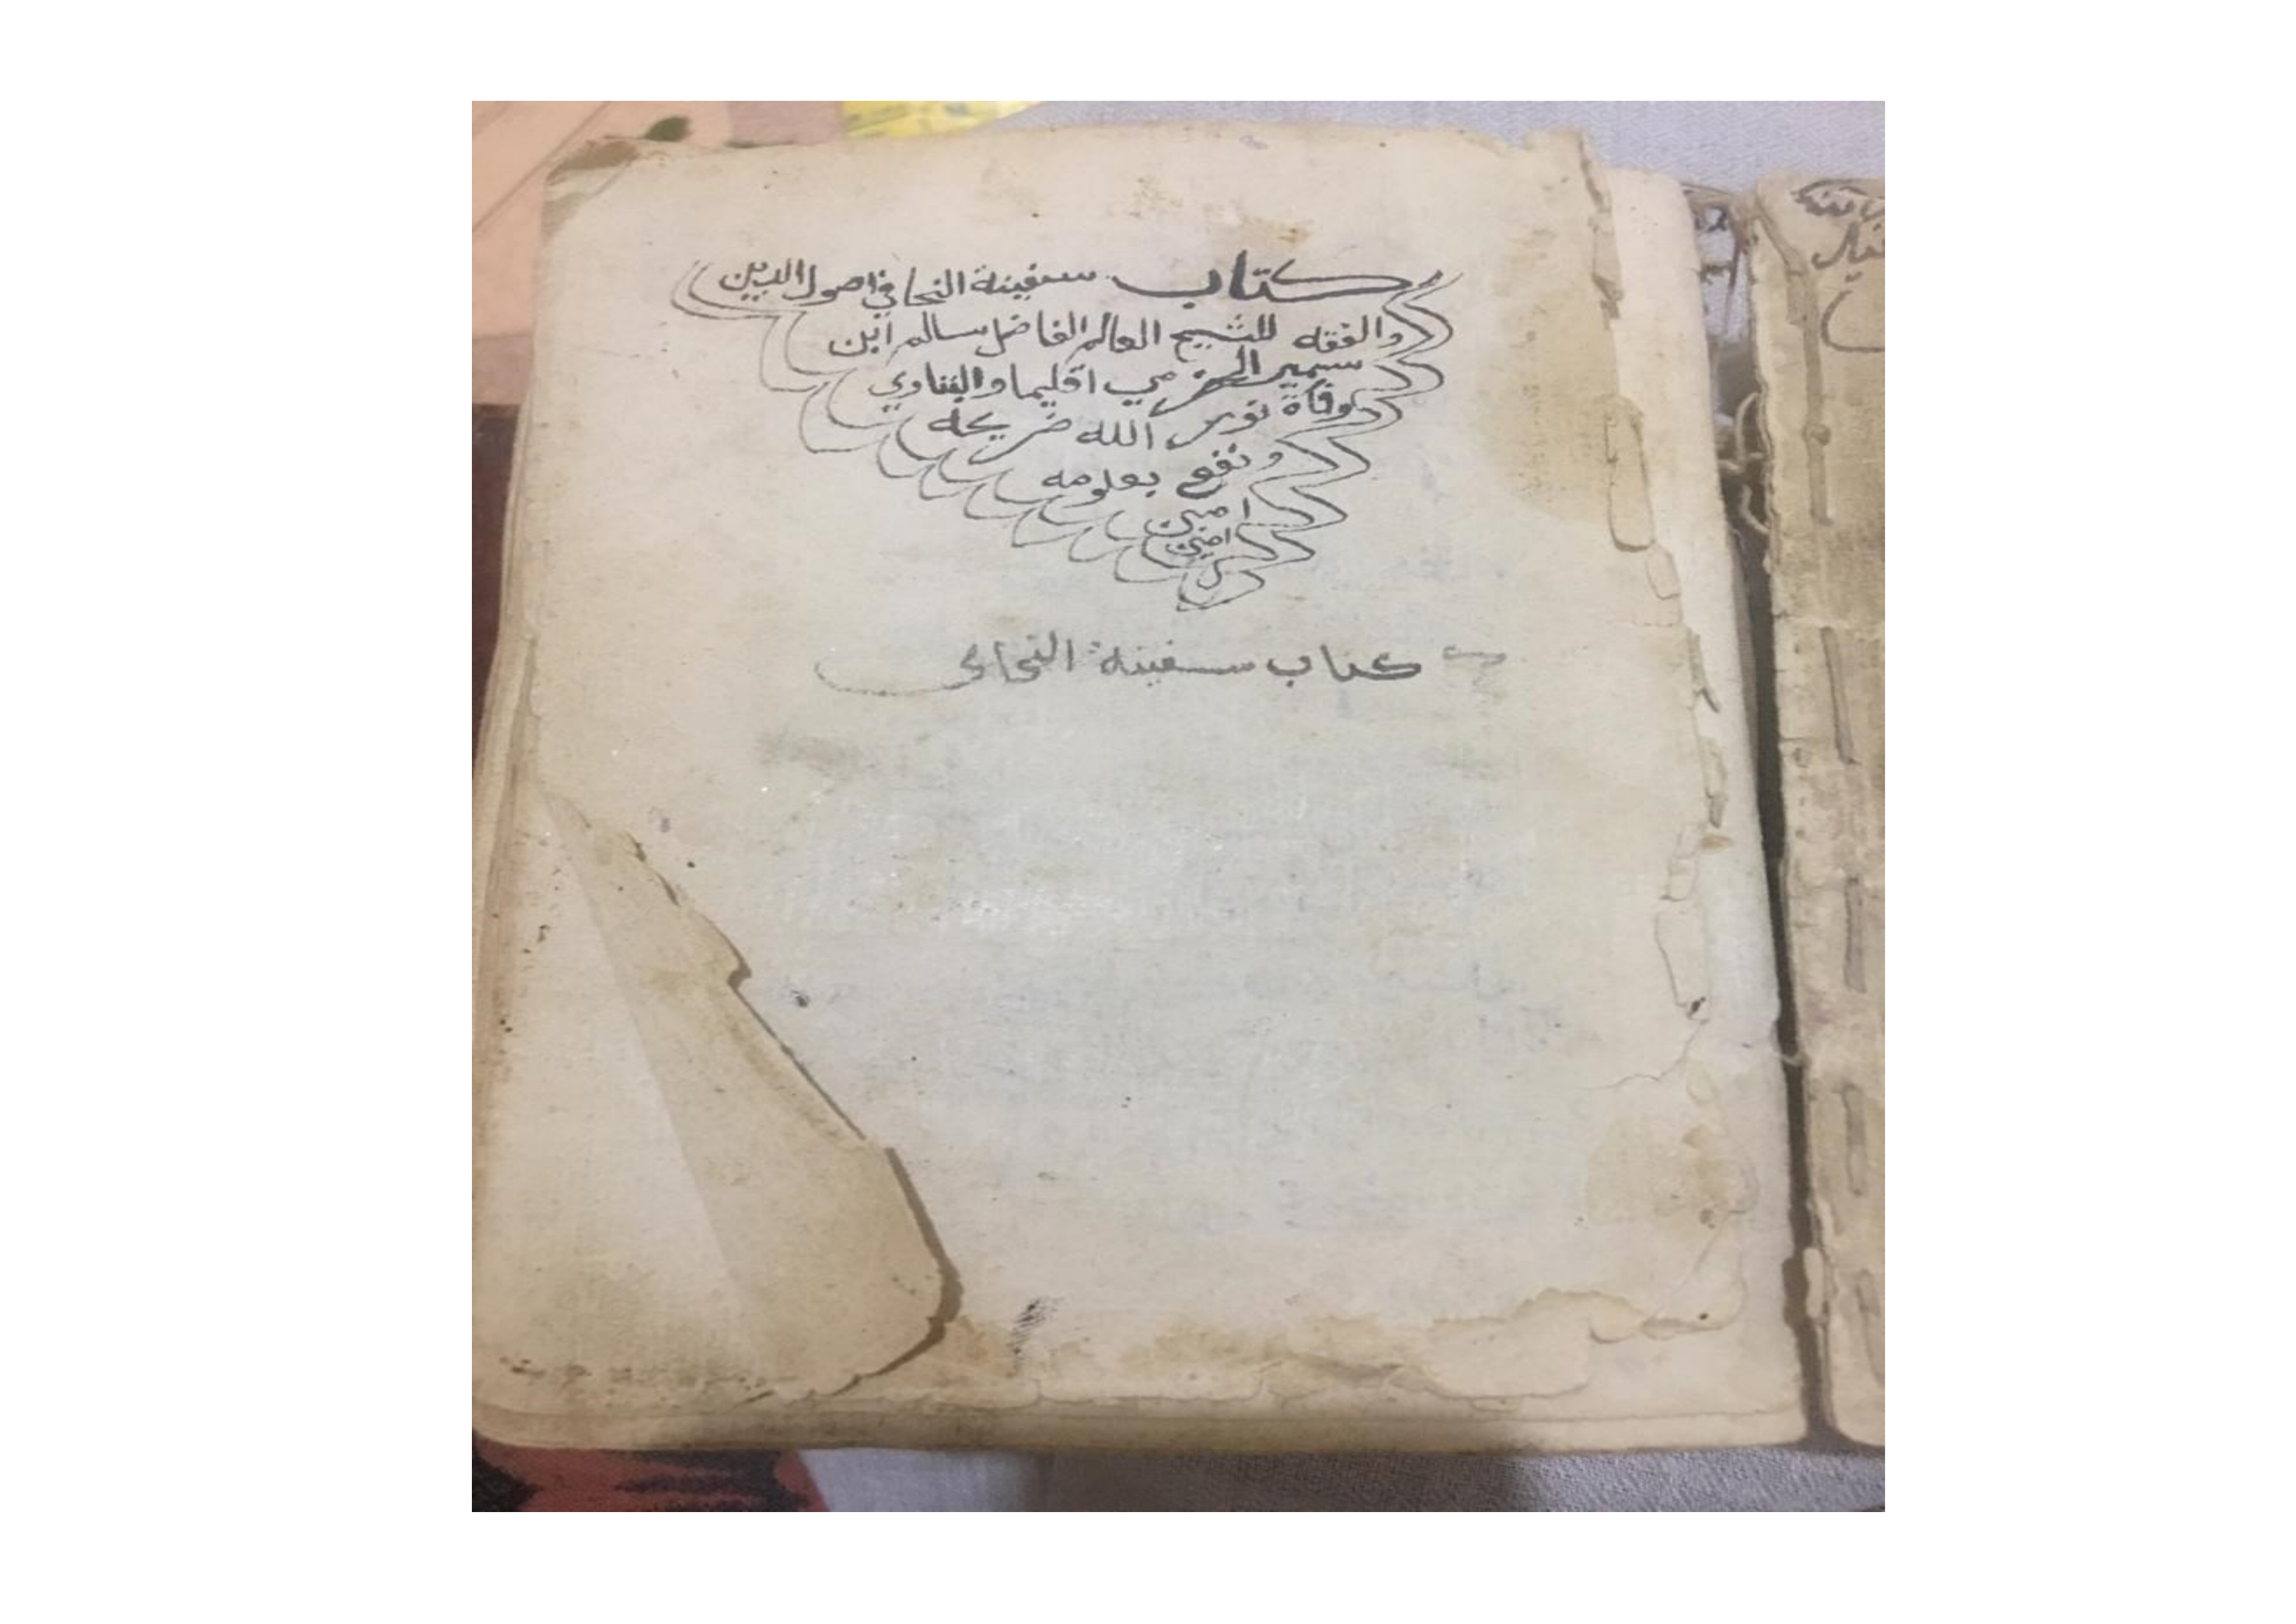 كتاب سفينة النجا في اصول الدين
والفقه للشيخ العالم الفاضل سالم ابن
سمير الحضرمي اقليما والبتاوي
وفاة نور الله ضريحه
ونفع بعلومه
امين
امين
كتاب سفينة النجا